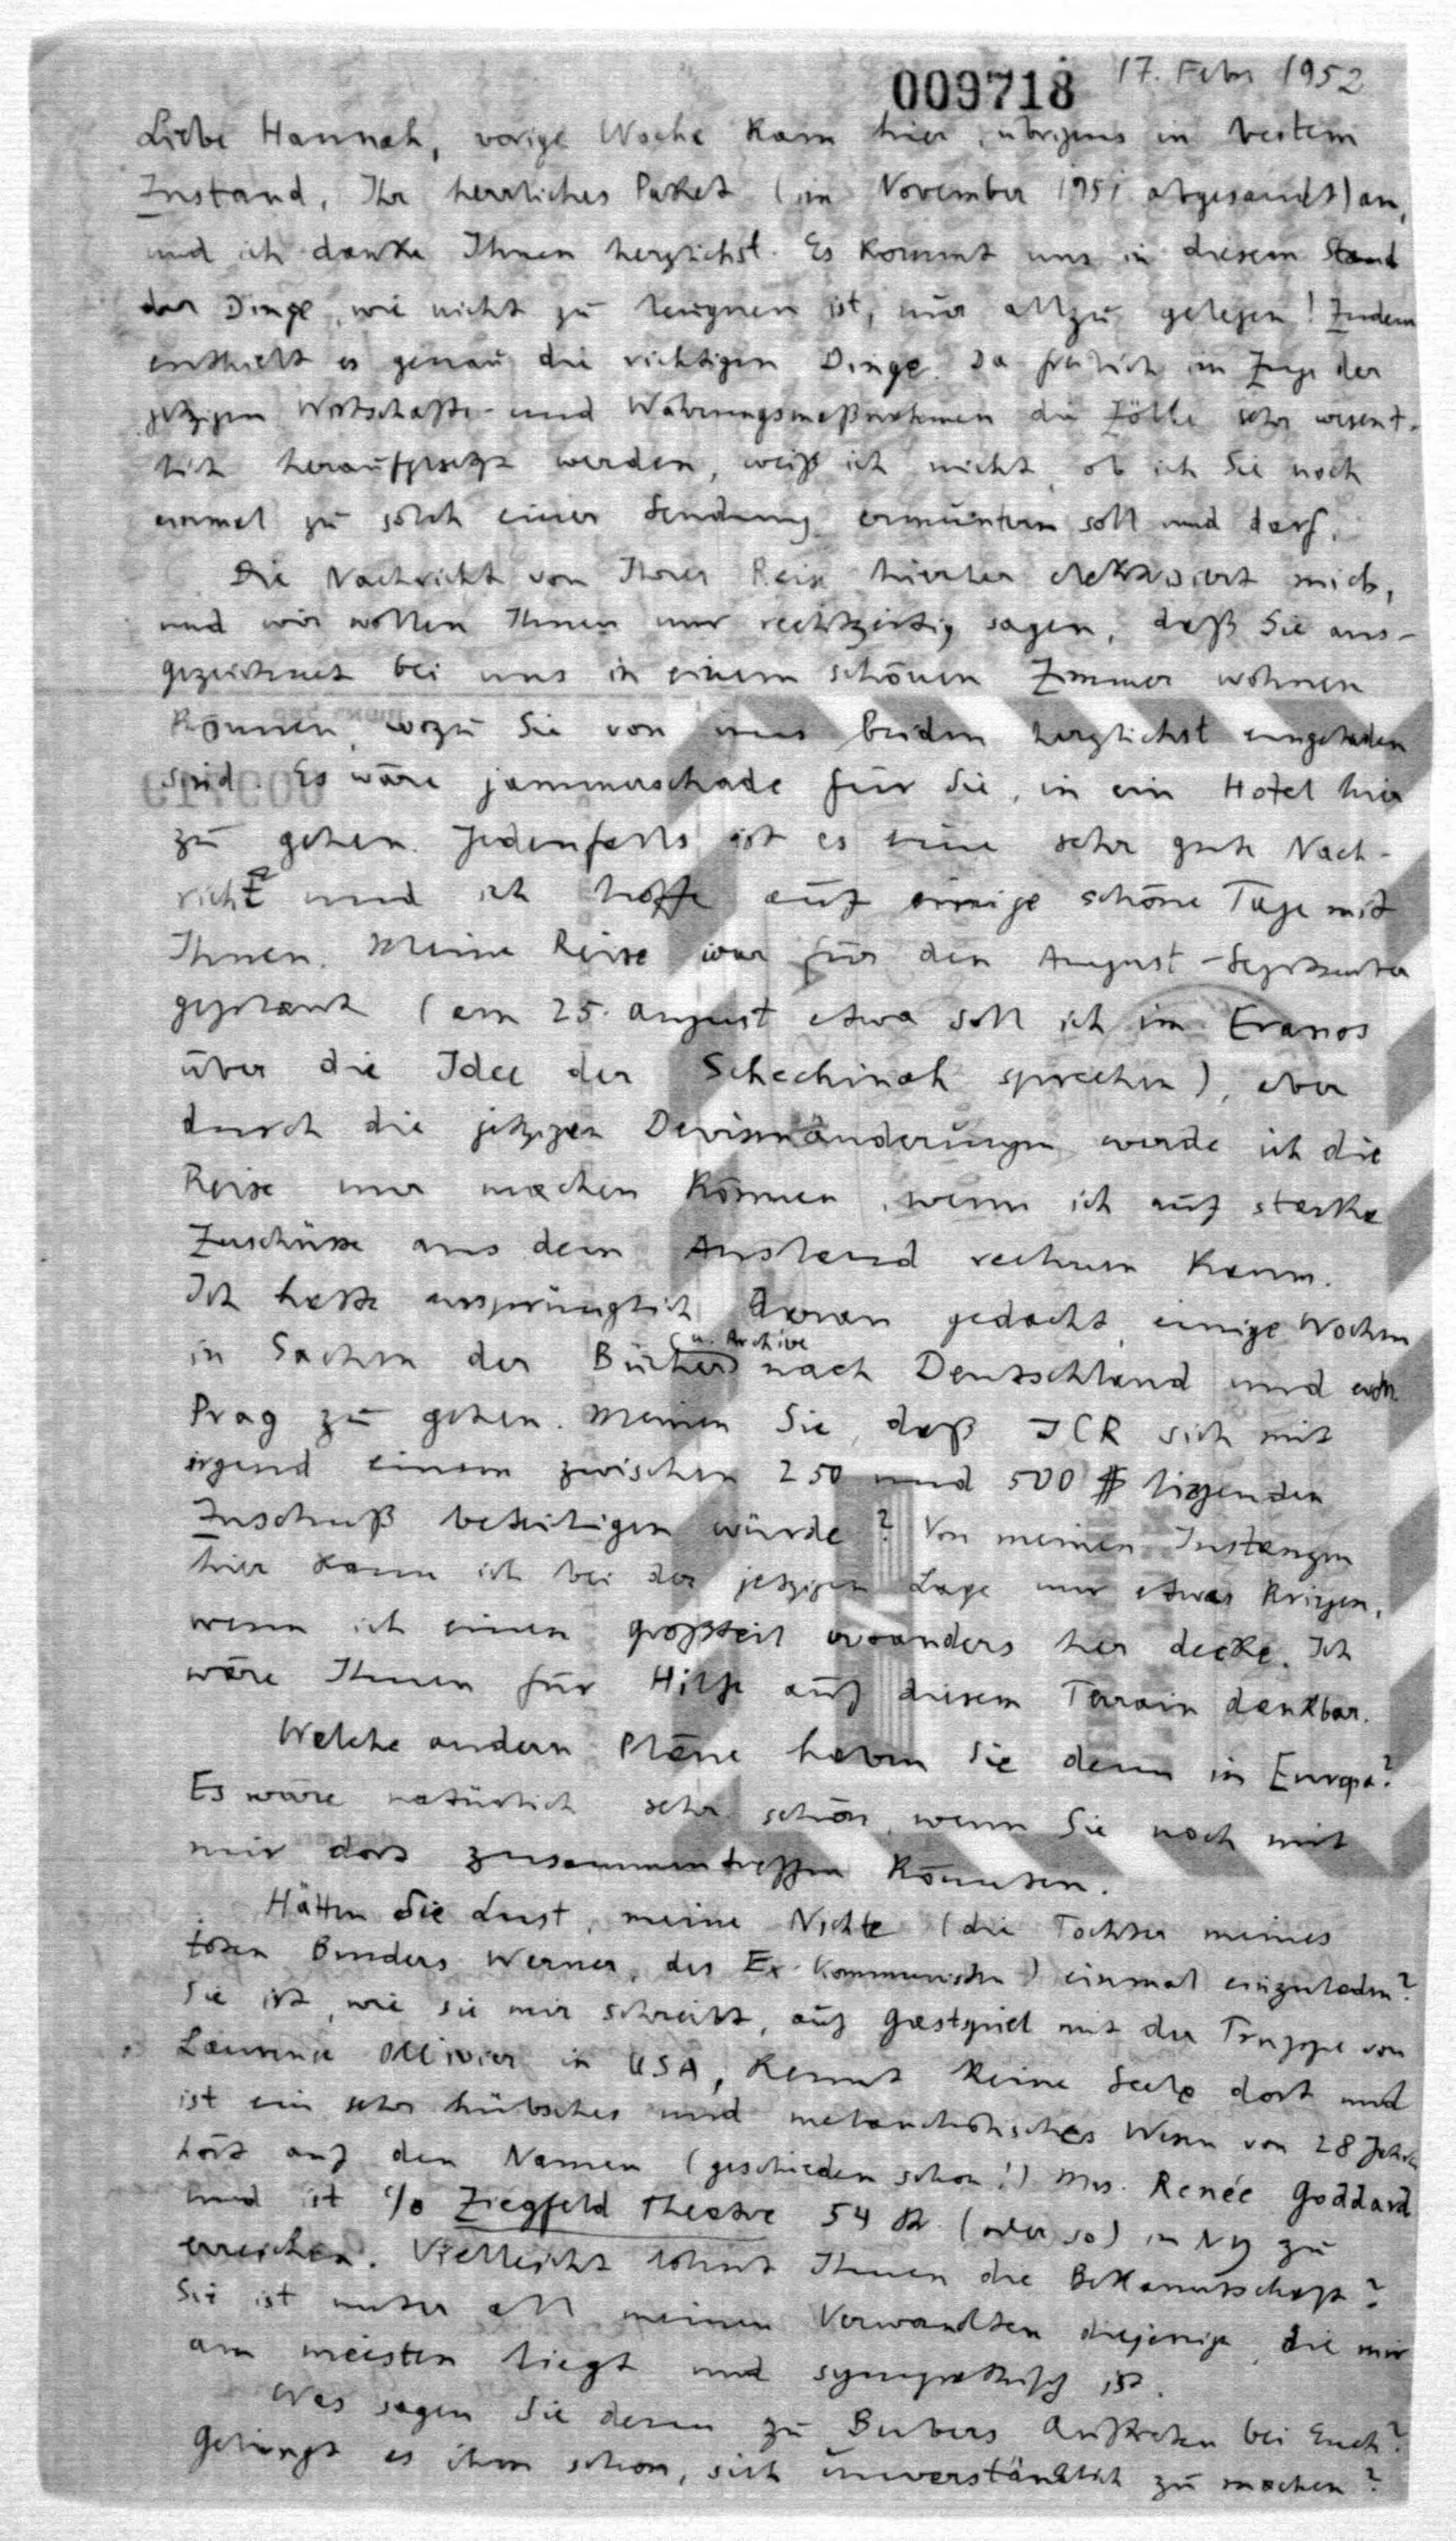 009718 17. Febr 1952
Liebe Hannah, vorige Woche kam hier, übrigens in bestem
Zustand, Ihr herrliches Paket (im November 1951 abgesandt) an,
und ich danke Ihnen herzlichst. Es kommt uns in diesem Stand
der Dinge, wie nicht zu leugnen ist, nur allzu gelegen! Zudem
enthielt es genau die richtigen Dinge. Da freilich im Zuge der
jetzigen Wirtschafts- und Währungsmaßnahmen die Zölle sehr wesent-
lich heraufgesetzt werden, weiß ich nicht, ob ich Sie noch
einmal zu solch einer Sendung ermuntern soll und darf.
Die Nachricht von Ihrer Reise hierher elektrisiert mich,
und wir wollen Ihnen nur rechtzeitig sagen, daß Sie aus-
gezeichnet bei uns in einem schönen Zimmer wohnen
können, wozu Sie von uns beiden herzlichst eingeladen
sind. Es wäre jammerschade für Sie, in ein Hotel hier
zu gehen. Jedenfalls ist es eine sehr gute Nach-
richt und ich hoffe auf einige schöne Tage mit
Ihnen. Meine Reise war für den August-September
geplant (am 25. August etwa soll ich im Eranos
über die Idee der Schechinah sprechen), aber
durch die jetzigen Devisenänderungen werde ich die
Reise nur machen können, wenn ich auf starke
Zuschüsse aus dem Ausland rechnen kann.
Ich hatte ursprünglich daran gedacht, einige Wochen
in Sachen der Bücher u. Archive nach Deutschland und evtl.
Prag zu gehen. Meinen Sie, daß JCR sich mit
irgend einem zwischen 250 und 500 $ liegenden
Zuschuß beteiligen würde? Von meinen Instanzen
hier kann ich bei der jetzigen Lage nur etwas kriegen,
wenn ich einen Großteil woanders her decke. Ich
wäre Ihnen für Hilfe auf diesem Terrain dankbar.
Welche andern Pläne haben Sie denn in Europa?
Es wäre natürlich sehr schön, wenn Sie noch mit
mir dort zusammentreffen könnten.
Hätten Sie Lust, meine Nichte (die Tochter meines
toten Bruders Werner, des Ex-Kommunisten) einmal einzuladen?
Sie ist, wie sie mir schreibt, auf Gastspiel mit der Truppe von
Laurence Ollivier in USA, kennt keine Seele dort und
ist ein sehr hübsches und melancholisches Wesen von 28 Jahren
hört auf den Namen (geschieden schon!) Mrs. Renée Goddard
und ist c/o Ziegfeld Theatre 54 St. (oder so) in NY zu
erreichen. Vielleicht lohnt Ihnen die Bekanntschaft?
Sie ist unter all meinen Verwandten diejenige, die mir
am meisten liegt und sympathisch ist.
Was sagen Sie denn zu Bubers Auftreten bei Euch?
Gelingt es ihm schon, sich unverständlich zu machen?